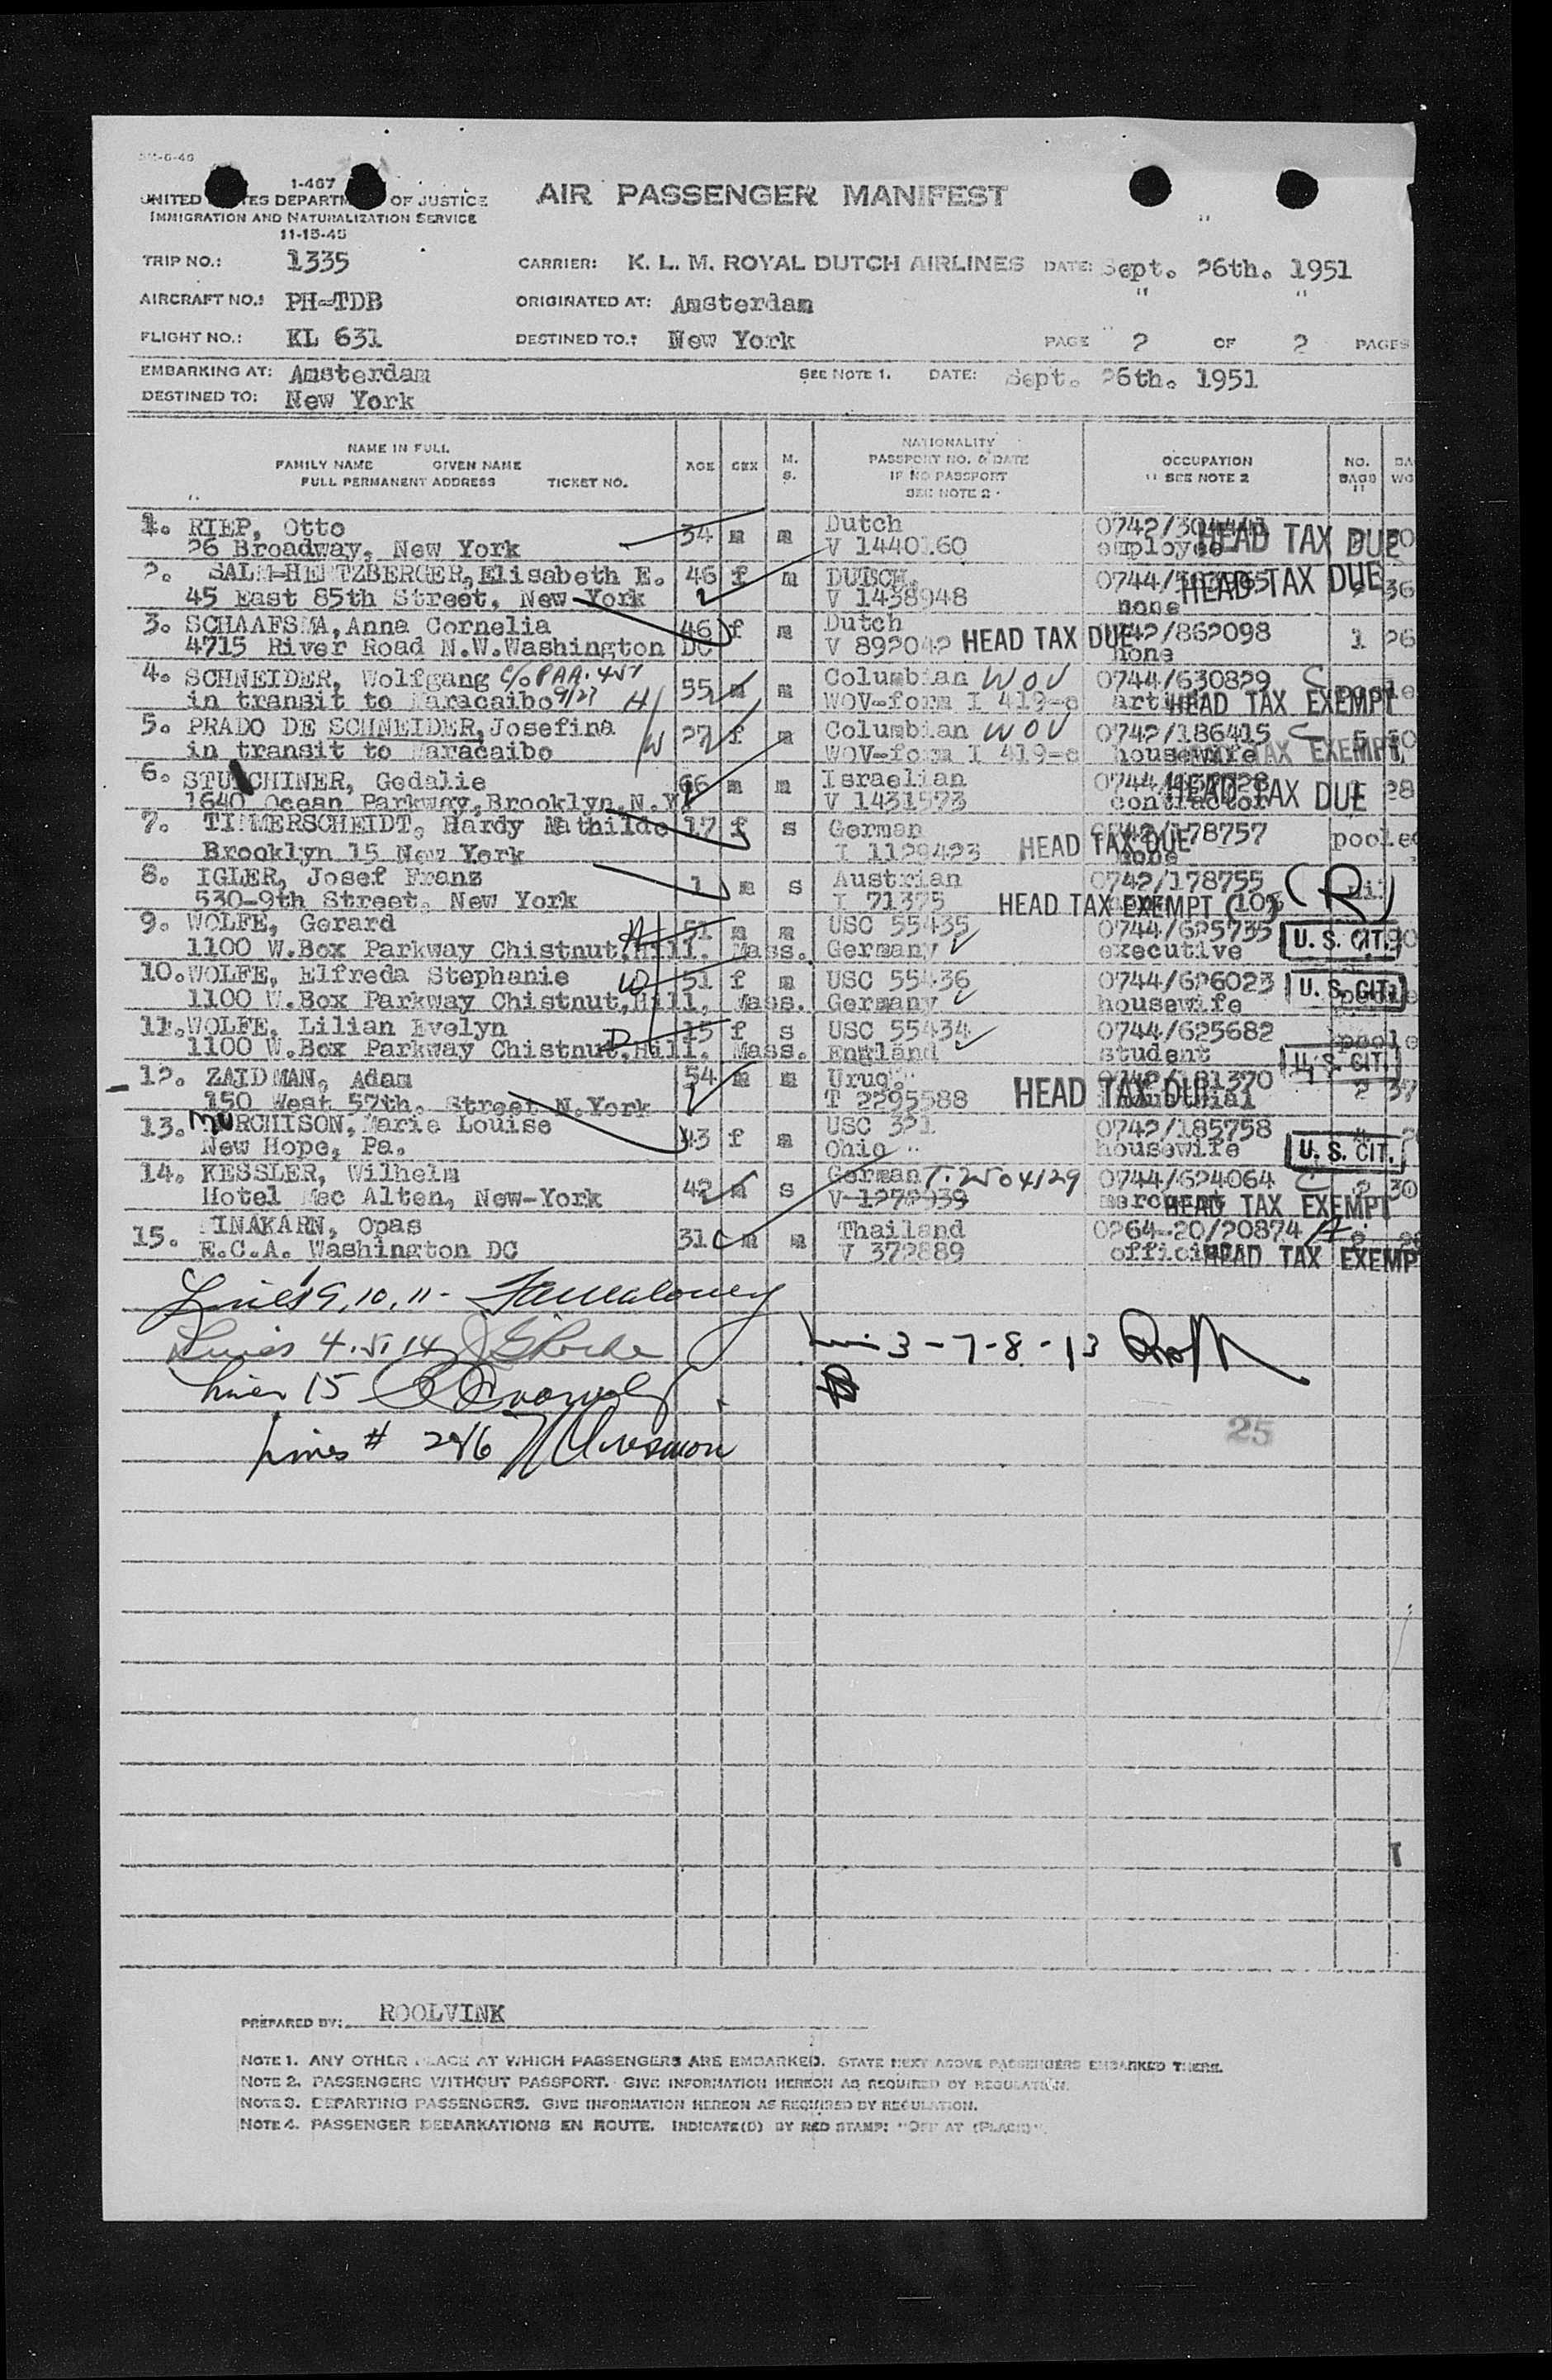 1-467
UNITED STATES DEPARTMENT OF JUSTICE
IMMIGRATION AND NATURALIZATION SERVICE
11-15-45
AIR PASSENGER MANIFEST
TRIP NO.: 1335 CARRIER: K. L. M. ROYAL DUTCH AIRLINES DATE: Sept. 26th. 1951
AIRCRAFT NO.: PH-TDB ORIGINATED AT: Amsterdam
FLIGHT NO.: KL 631 DESTINED TO.: New York PAGE 2 OF 2 PAGES
EMBARKING AT: Amsterdam SEE NOTE 1. DATE: Sept. 26th. 1951
DESTINED TO: New York
NAME IN FULL
FAMILY NAME GIVEN NAME
FULL PERMANENT ADDRESS TICKET NO.
AGE SEX M. S.
NATIONALITY
PASSPORT NO. & DATE
IF NO PASSPORT
SEE NOTE 2
OCCUPATION
SEE NOTE 2
NO. BAGS
1. RIEP, Otto 34 m m Dutch
26 Broadway, New York V 1440160 employee HEAD TAX DUE
2. SALM-HERTZBERGER, Elisabeth E. 46 f m DUTCH.
45 East 85th Street, New York V 1438948 none HEAD TAX DUE 36
3. SCHAAFSMA, Anna Cornelia 46 f m Dutch 0742/862098 1 26
4715 River Road N.W.Washington DC V 892042 HEAD TAX DUE none
4. SCHNEIDER, Wolfgang c/o PAA. 457 55 m m Columbian WOV 0744/630829 C
in transit to Maracaibo 9/27 H WOV-form I 419-c HEAD TAX EXEMPT
5. PRADO DE SCHNEIDER, Josefina 27 f m Columbian WOV 0742/186415 C
in transit to Maracaibo W WOV-form I 419-c housewife HEAD TAX EXEMPT
6. CHINER, Gedalie 66 m m Israelian
1640 Ocean Parkway, Brooklyn, N.Y. V 1431573 contractor HEAD TAX DUE 28
7. TIMMERSCHEIDT, Hardy Mathilde 17 f s German 0742/178757 pooled
Brooklyn 15 New York I 1129423 HEAD TAX DUE none
8. IGLER, Josef Franz 1 m s Austrian 0742/178755 (R)
530-9th Street, New York I 71375 HEAD TAX EXEMPT
9. WOLFE, Gerard 51 m m USC 55435 0744/625735
1100 W.Box Parkway Chistnut, Hill. Mass. Germany executive U. S. CIT.
10. WOLFE, Elfreda Stephanie W 51 f m USC 55436 0744/626023
1100 W.Box Parkway Chistnut, Hill, Mass. Germany housewife U. S. CIT.
11. WOLFE, Lilian Evelyn D 15 f s USC 55434 0744/625682
1100 W.Box Parkway Chistnut, Hill. Mass. England student U. S. CIT.
12. ZAIDMAN, Adam 54 m m Urug. 0742/181370 2 37
150 West 57th. Street N.York T 2295588 HEAD TAX DUE industrial
13. MURCHISON, Marie Louise 43 f m USC 321 0742/185758
New Hope, Pa. Ohio housewife U. S. CIT.
14. KESSLER, Wilhelm 42 m s German T. 2504129 0744/624064 C 2 30
Hotel Mac Alten, New-York V 1272939 HEAD TAX EXEMPT
15. TINAKARN, Opas 31 m m Thailand 0264-20/20874
E.C.A. Washington DC V 372889 HEAD TAX EXEMP
Lines 9, 10, 11-
Lines 4. 5. 14
3-7-8-13
Lines 15
25
Lines # 2&6
PREPARED BY: ROOLVINK
NOTE 1. ANY OTHER PLACE AT WHICH PASSENGERS ARE EMBARKED. STATE NEXT ABOVE PASSENGERS EMBARKED THERE.
NOTE 2. PASSENGERS WITHOUT PASSPORT. GIVE INFORMATION HEREON AS REQUIRED BY REGULATION.
NOTE 3. DEPARTING PASSENGERS. GIVE INFORMATION HEREON AS REQUIRED BY REGULATION.
NOTE 4. PASSENGER DEBARKATIONS EN ROUTE. INDICATE(D) BY RED STAMP: "OFF AT (PLACE)".